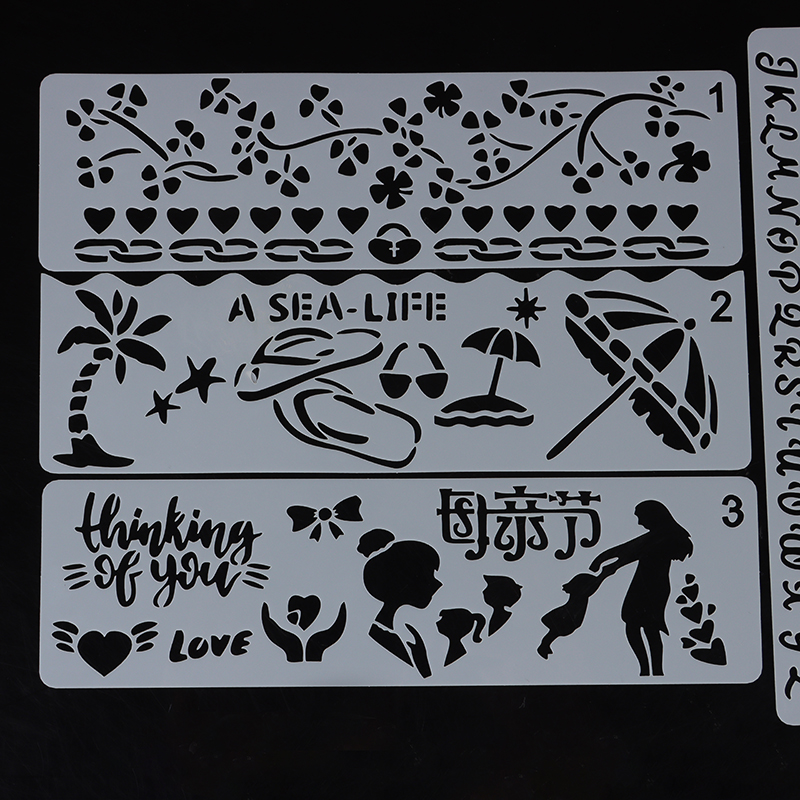 1
A SEA-LIFE
2
thinking
of you
母亲节
3
LOVE
J K L M N O P Q R S T U V W X Y Z